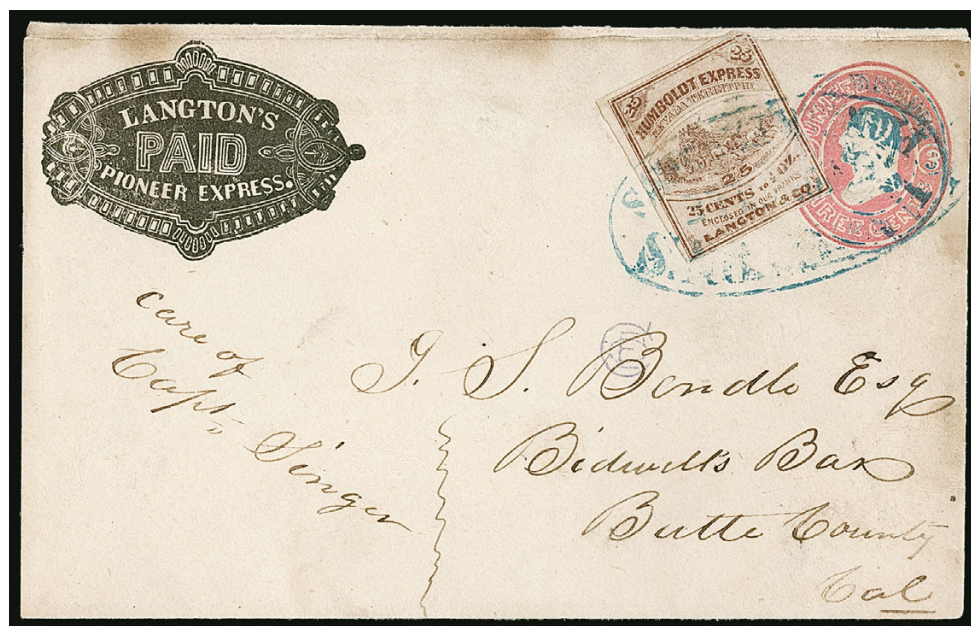 LANGTON'S
PAID
PIONEER EXPRESS.
25 25
HUMBOLDT EXPRESS
NEVADA TERRITORY
25
25 CENTS
ENCLOSED IN OUR FRANKS
LANGTON & CO.
UNITED STATES
3
THREE CENTS
care of
Capt. Singer
J. S. Bendle Esq
Bidwell's Bar
Butte County
Cal